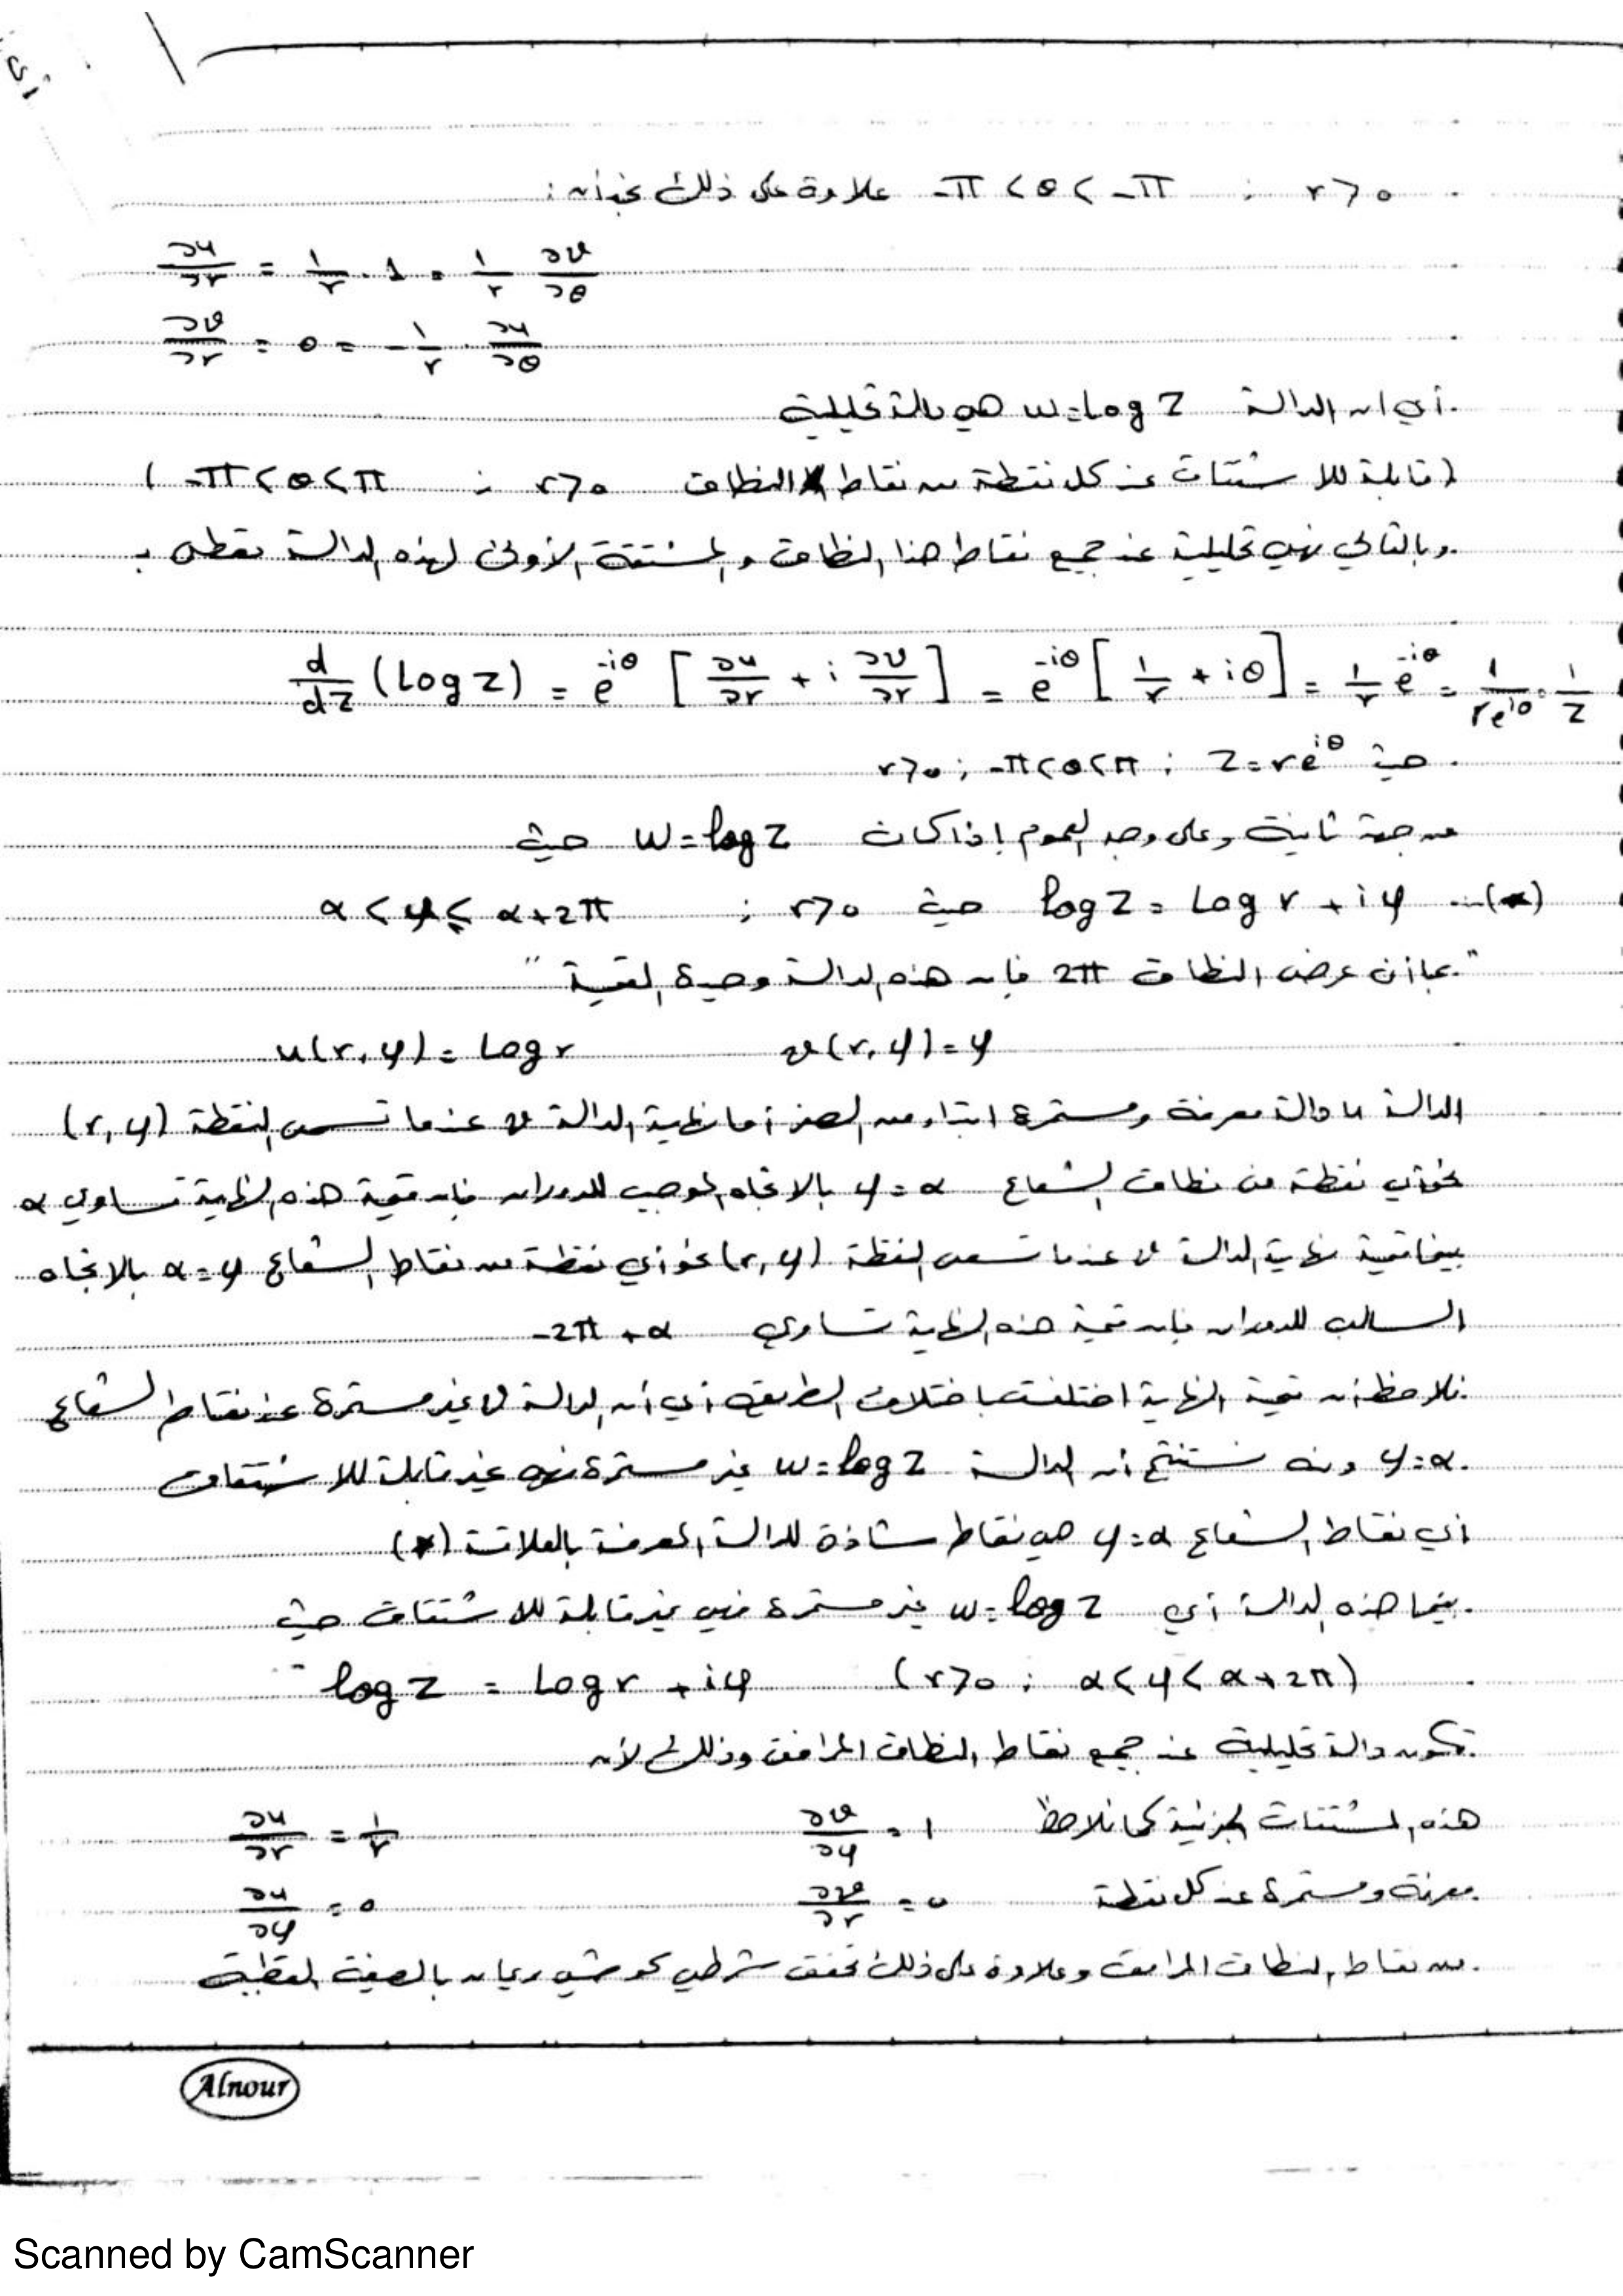 r>0 ; -π<θ<-π علاوة على ذلك نجد أن :
∂u/∂r = 1/r . 1 = 1/r ∂v/∂θ
∂v/∂r = 0 = -1/r . ∂u/∂θ
أي ان الدالة w=Log z هي دالة تحليلية
(قابلة للاشتقاق عند كل نقطة من نقاط النطاق r>0 ; -π<θ<π)
وبالتالي فهي تحليلية عند جميع نقاط هذا النطاق والمشتقة الأولى لهذه الدالة تعطى بـ
d/dz (Log z) = e^-iθ [∂u/∂r + i ∂v/∂r] = e^-iθ [1/r + i0] = 1/r e^-iθ = 1/re^iθ = 1/z
حيث z=re^iθ ; -π<θ<π ; r>0
من جهة ثانية وعلى وجه العموم إذا كانت w=log z حيث
log z = Log r + iφ ...(*) حيث r>0 ; α<φ≤α+2π
"بما أن عرض النطاق 2π فإن هذه الدالة وحيدة القيمة"
u(r,φ)=Log r v(r,φ)=φ
الدالة u دالة معرفة ومستمرة ابتداء من الصفر أما نهاية الدالة v عندما تسعى النقطة (r,φ)
نحو أي نقطة من نطاق الشعاع φ=α بالاتجاه الموجب للدوران فإن قيمة هذه النهاية تساوي α
بينما قيمة نهاية الدالة v عندما تسعى النقطة (r,φ) نحو أي نقطة من نقاط الشعاع α=φ بالاتجاه
السالب للدوران فإن قيمة هذه النهاية تساوي -2π+α
نلاحظ أن قيمة النهاية اختلفت باختلاف الطريق أي أن الدالة v غير مستمرة عند نقاط الشعاع
φ=α ومنه نستنتج أن الدالة w=log z غير مستمرة فهي غير قابلة للاشتقاق
أي نقاط الشعاع φ=α هي نقاط شاذة للدالة المعرفة بالعلاقة (*)
بينما هذه الدالة أي w=log z غير مستمرة فهي غير قابلة للاشتقاق حيث
log z = Log r + iφ (r>0 ; α<φ<α+2π)
تكون دالة تحليلية عند جميع نقاط النطاق المرافق وذلك لأن
هذه المشتقات الجزئية كما نلاحظ ∂v/∂φ = 1 ∂u/∂r = 1/r
معرفة ومستمرة عند كل نقطة ∂v/∂r = 0 ∂u/∂φ = 0
من نقاط النطاق المرافق وعلاوة على ذلك تحقق شرطي كوشي ريمان بالصيغة القطبية
Alnour
Scanned by CamScanner